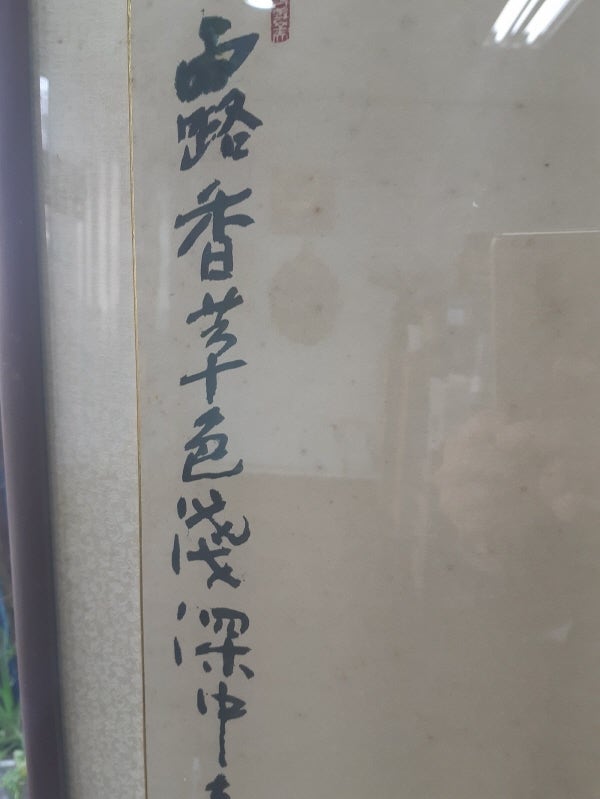 露香草色淺深中